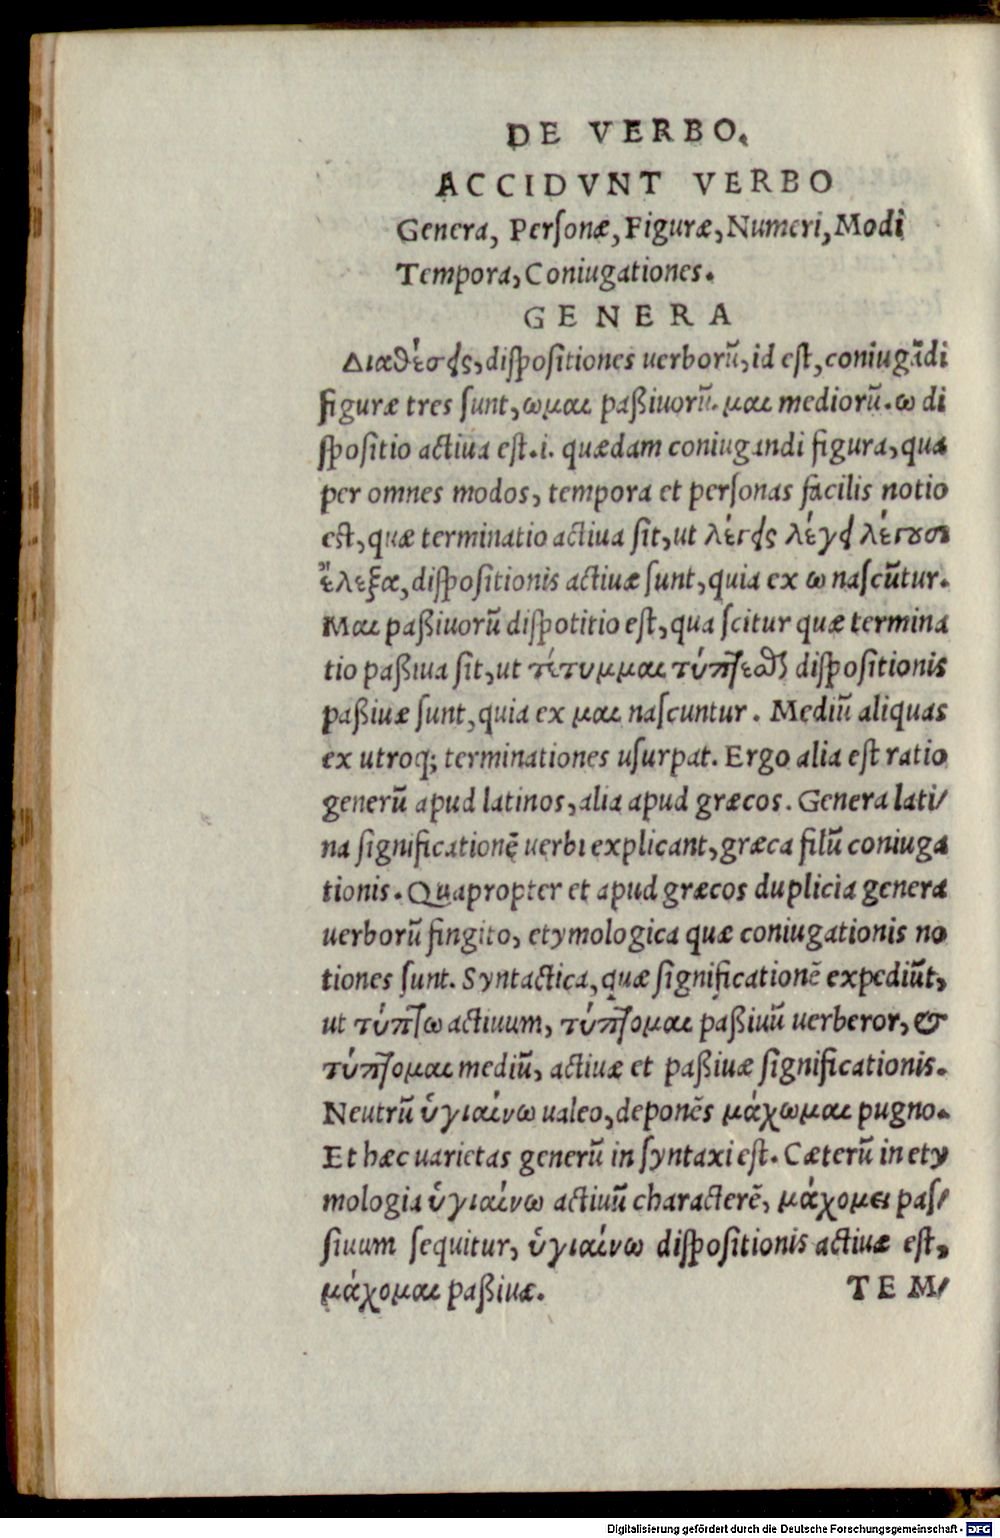 DE VERBO.
ACCIDVNT VERBO
Genera, Personæ, Figuræ, Numeri, Modi
Tempora, Coniugationes.
GENERA
Διαθέσεις, dispositiones uerborū, id est, coniugādi
figuræ tres sunt, ω μαι paßiuorū. μαι mediorū. ω di
spositio actiua est .i. quædam coniugandi figura, qua
per omnes modos, tempora et personas facilis notio
est, quæ terminatio actiua sit, ut λέγεις λέγει λέγουσι
ἔλεξα, dispositionis actiuæ sunt, quia ex ω nascūtur.
Μαι paßiuorū dispotitio est, qua scitur quæ termina
tio paßiua sit, ut τέτυμμαι τύπτεσθαι dispositionis
paßiuæ sunt, quia ex μαι nascuntur. Mediū aliquas
ex utroq; terminationes usurpat. Ergo alia est ratio
generū apud latinos, alia apud græcos. Genera lati/
na significationē uerbi explicant, græca filū coniuga
tionis. Quapropter et apud græcos duplicia genera
uerborū fingito, etymologica quæ coniugationis no
tiones sunt. Syntactica, quæ significationē expediūt,
ut τύπτω actiuum, τύπτομαι paßiuū uerberor, &
τύπτομαι mediū, actiuæ et paßiuæ significationis.
Neutrū ὑγιαίνω ualeo, deponēs μάχωμαι pugno.
Et hæc uarietas generū in syntaxi est. Cæterū in ety
mologia ὑγιαίνω actiuū characterē, μάχομαι pas/
siuum sequitur, ὑγιαίνω dispositionis actiuæ est,
μάχομαι paßiuæ.
TEM/
Digitalisierung gefördert durch die Deutsche Forschungsgemeinschaft - DFG